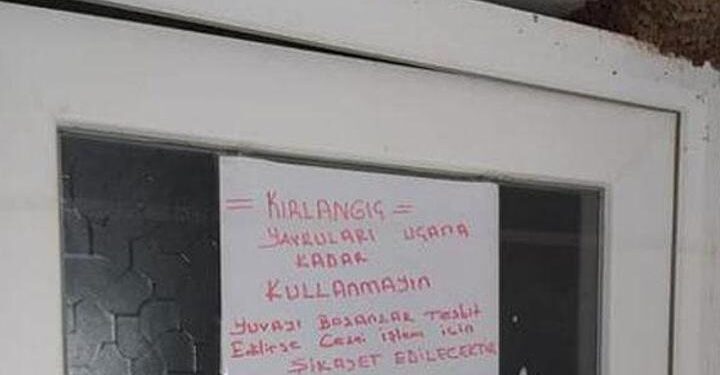 = KIRLANGIÇ =
YAVRULARI UÇANA
KADAR
KULLANMAYIN
YUVAYI BOZANLAR TESBİT
Edilirse Cezai işlem için
ŞİKAJET EDİLECEKTİR